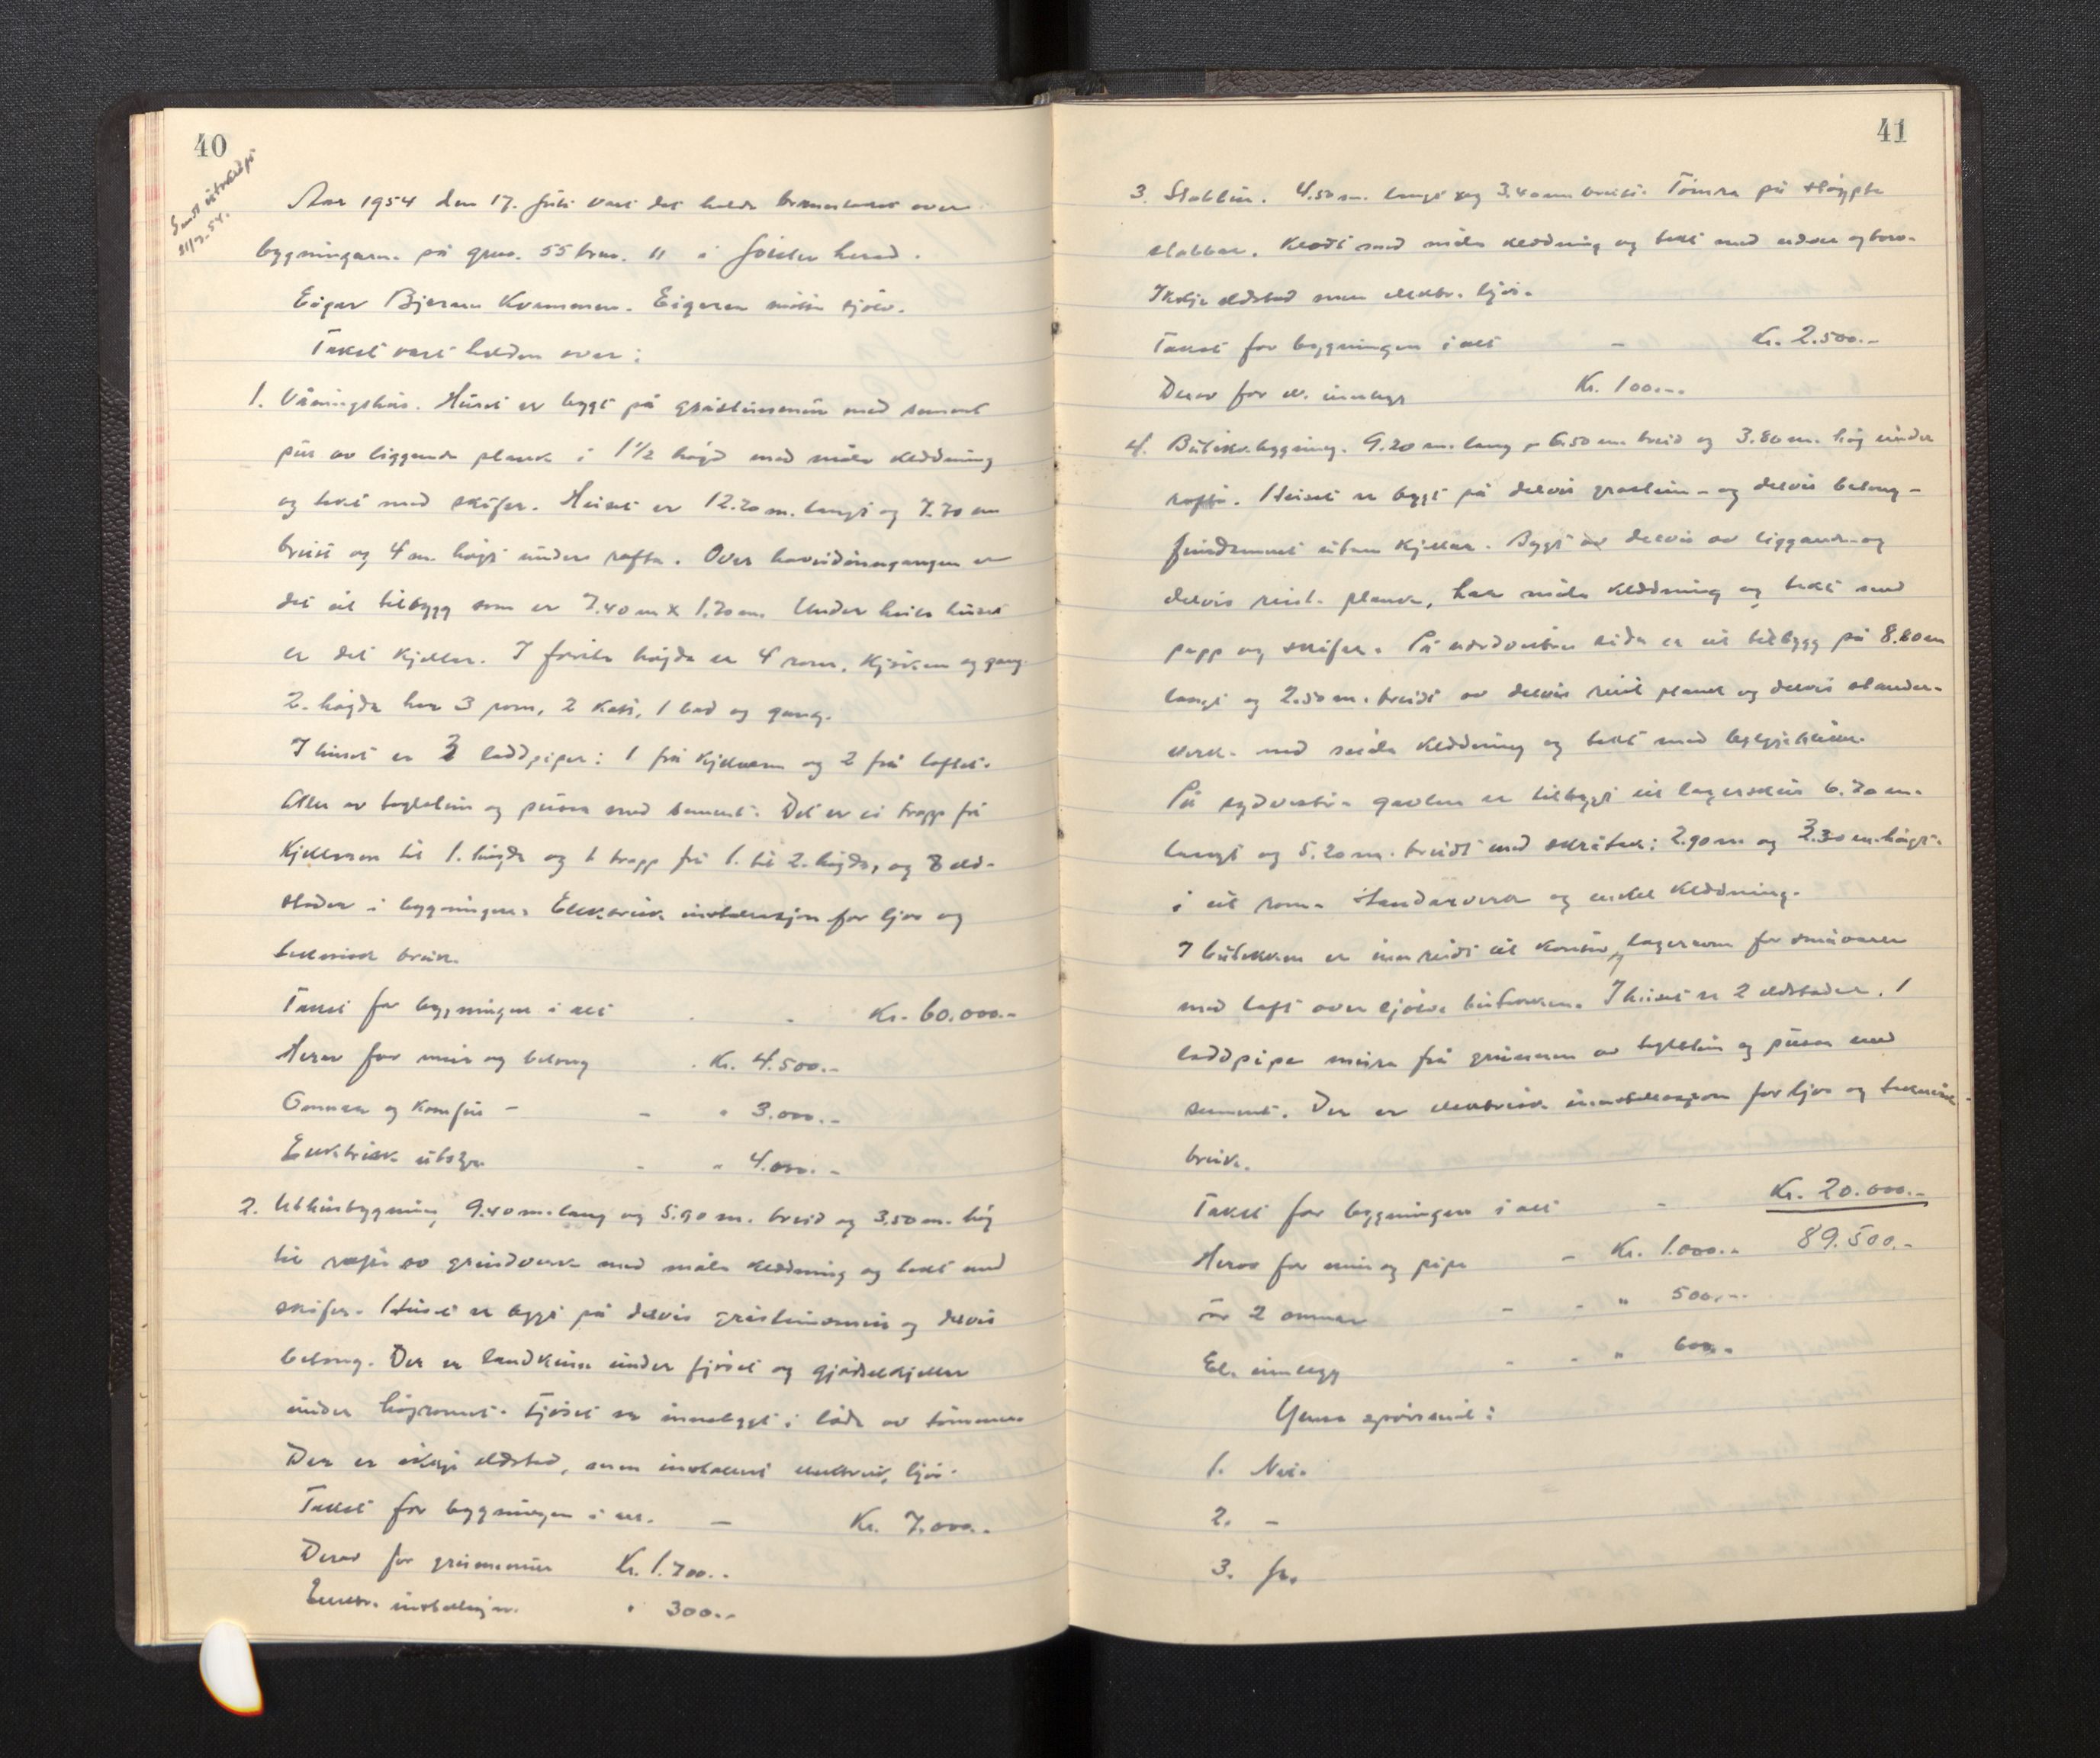 40
Sendt utskrift
21/7-54.
Aar 1954 den 17. juli vart det halde branntakst over
bygningarne på gnr. 55 brn. 11 i Förde herad.
Eigar Bjarne Kvammen. Eigaren møtte sjølv.
Takst vart halden over:
1. Våningshus. Huset er bygt på gråsteinsmur med sement
puss av liggende plank i 1 1/2 høgd med måla kledning
og tekt med skifer. Huset er 12.20 m. langt og 7.70 m
breitt og 4 m. høgt under rafta. Over hovudinngangen er
det eit tilbygg som er 7.40 m x 1.70 m. Under heile huset
er det kjellar. I første høgda er 4 rom, kjøken og gang.
2. høgda har 3 rom, 2 kott, 1 bad og gang.
I huset er 3 laddpiper: 1 frå kjellaren og 2 frå loftet.
Alle av teglstein og pussa med sement. Det er ei trapp frå
kjellaren til 1. høgda og 1 trapp frå 1. til 2. høgda, og 8 eld-
stader i bygningen. Elektrisk installasjon for ljos og
teknisk bruk.
Takst for bygningen i alt Kr. 60.000.-
Herav for mur og betong Kr. 4.500.-
Omnar og komfur - - " 3.000.-
Elektrisk utstyr - " 4.000.-
2. Uthusbygning, 9.40 m. lang og 5.90 m. breid og 3.50 m. høg
til raft av grindverk med måla kledning og tekt med
skifer. Huset er bygt på delvis gråsteinsmur og delvis
betong. Der er landkum under fjøset og gjødselkjellar
under høyromet. Fjøset er innebygt i låda av tømmer.
Der er ikkje eldstad, men installert elektrisk ljos.
Takst for bygningen i alt. - Kr. 7.000.-
Derav for grunnmur Kr. 1.700.-
Elektr. installasjon. " 300.-
41
3. Stabbur. 4.50 m. langt og 3.40 m breitt. Tømra på støypte
stabbar. Kledt med måla kledning og tekt med
Ikkje eldstad men elektr. ljos.
Takst for bygningen i alt - Kr. 2.500.-
Derav for el. innlegg Kr. 100.-
4. Butikkbygning. 9.20 m. lang, 6.50 m. breid og 3.80 m. høg under
rafta. Huset er bygt på delvis gråstein- og delvis betong-
fundament utan kjellar. Bygt av delvis av liggande- og
delvis reist- plank, har måla kledning og tekt med
papp og skifer. På nordvestre sida er eit tilbygg på 8.80 m
langt og 2.50 m. breidt av delvis reist plank og delvis stander-
verk. med måla kledning og tekt med
På sydvestre gavlen er tilbygt eit lagerskur 6.70 m.
langt og 5.20 m. breidt med skråtak: 2.90 m og 3.30 m. høgt.
i eit rom. Standarverk og enkel kledning.
I butikken er innreidt eit kontor og lagerrom for småvarer
med loft over sjølve butikken. I huset er 2 eldstader. 1
laddpipe mura frå grunnen av teglstein og pussa med
sement. Der er elektrisk installasjon for ljos og teknisk
bruk.
Takst for bygningen i alt - Kr. 20.000.-
89.500.-
Herav for mur og pipe - Kr. 1.000.-
for 2 omnar - - " 500.-
El. innlegg - - " 600.-
Ymse spørsmål:
1. Nei.
2. -
3. Ja.